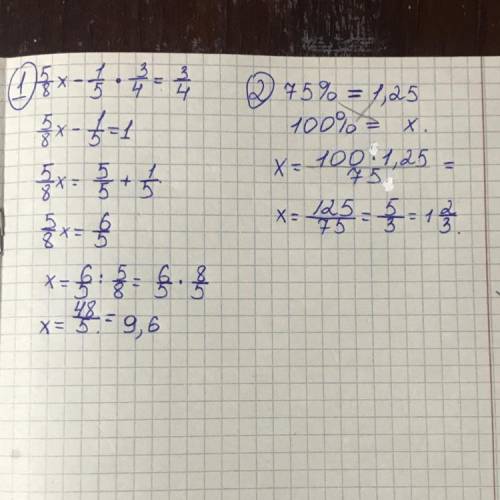 ① 5/8 x - 1/5 · 3/4 = 3/4
5/8 x - 1/5 = 1
5/8 x = 5/5 + 1/5
5/8 x = 6/5
x = 6/5 : 5/8 = 6/5 · 8/5
x = 48/5 = 9,6
② 75% = 1,25
100% = x.
x = 100·1,25/75 =
x = 125/75 = 5/3 = 1 2/3.